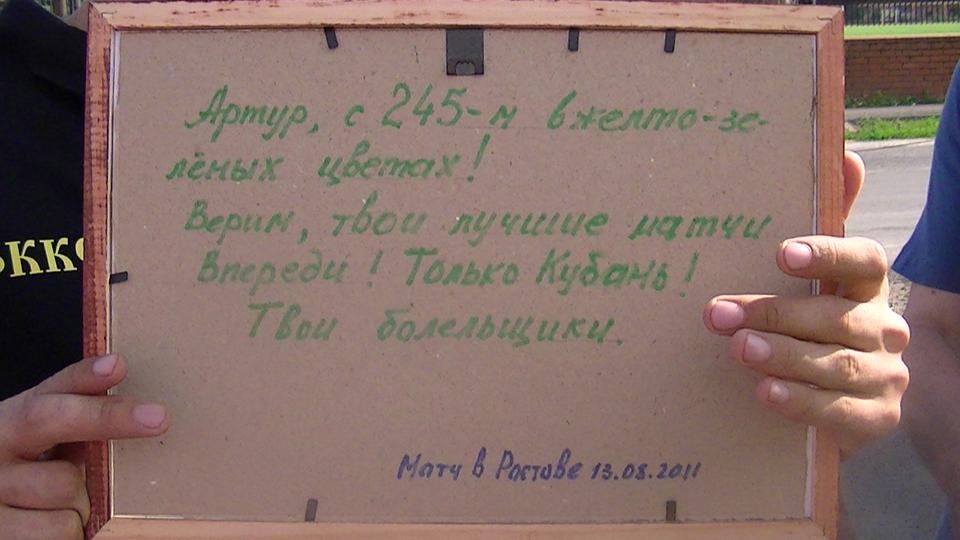 Артур, с 245-м в желто-зе-
лёных цветах!
Верим, твои лучшие матчи
впереди! Только Кубань!
Твои болельщики.
Матч в Ростове 13.08.2011